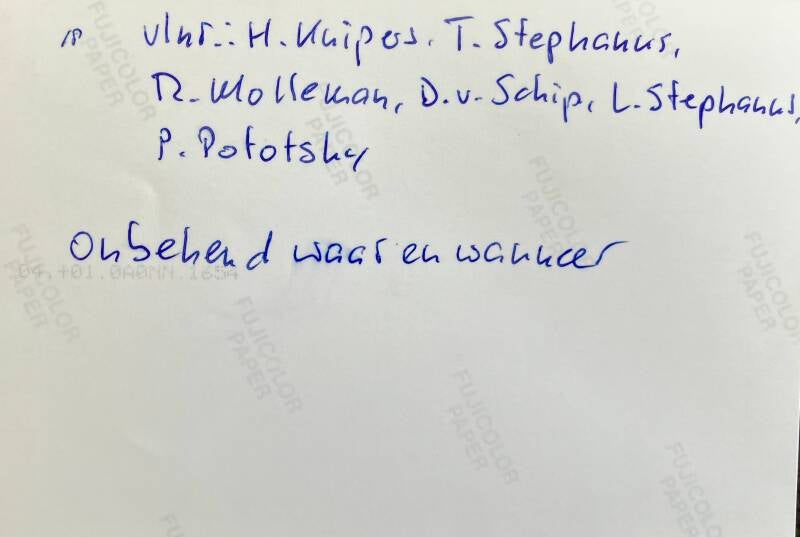 18 vlnr.: H. Knipers, T. Stephanus,
R. Molleman, D.v. Schip, L. Stephanus,
P. Pototsky
Onbekend waar en wanneer
04.+01.0A0NN.1654
FUJICOLOR
PAPER
FUJICOLOR
PAPER
FUJICOLOR
PAPER
FUJICOLOR
PAPER
FUJICOLOR
PAPER
FUJICOLOR
PAPER
FUJICOLOR
PAPER
FUJICOLOR
PAPER